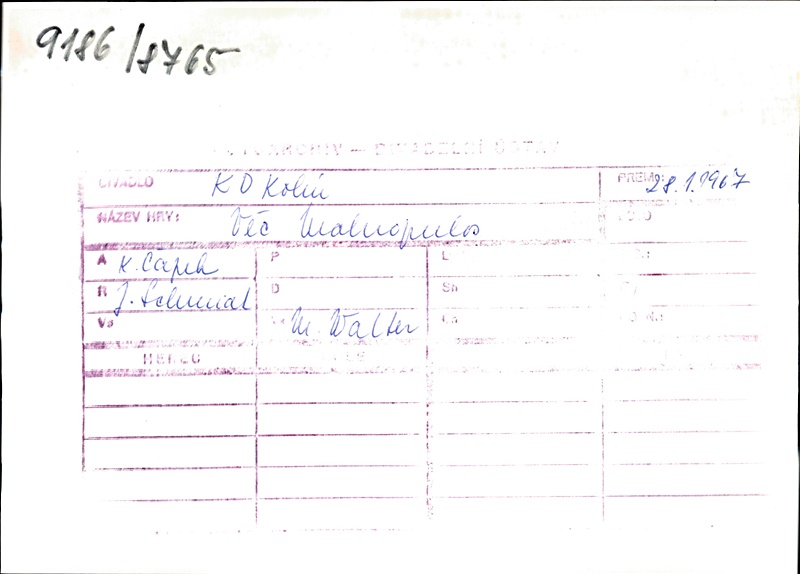 9186/8765
ARCHIV — DIVADELNÍ ÚSTAV
DIVADLO KD Kolín PREM.: 28.1.1967
NÁZEV HRY: Věc Makropulos
A K. Čapek P
R J. Schmidt D Sn
Vs M. Walter
HEREC